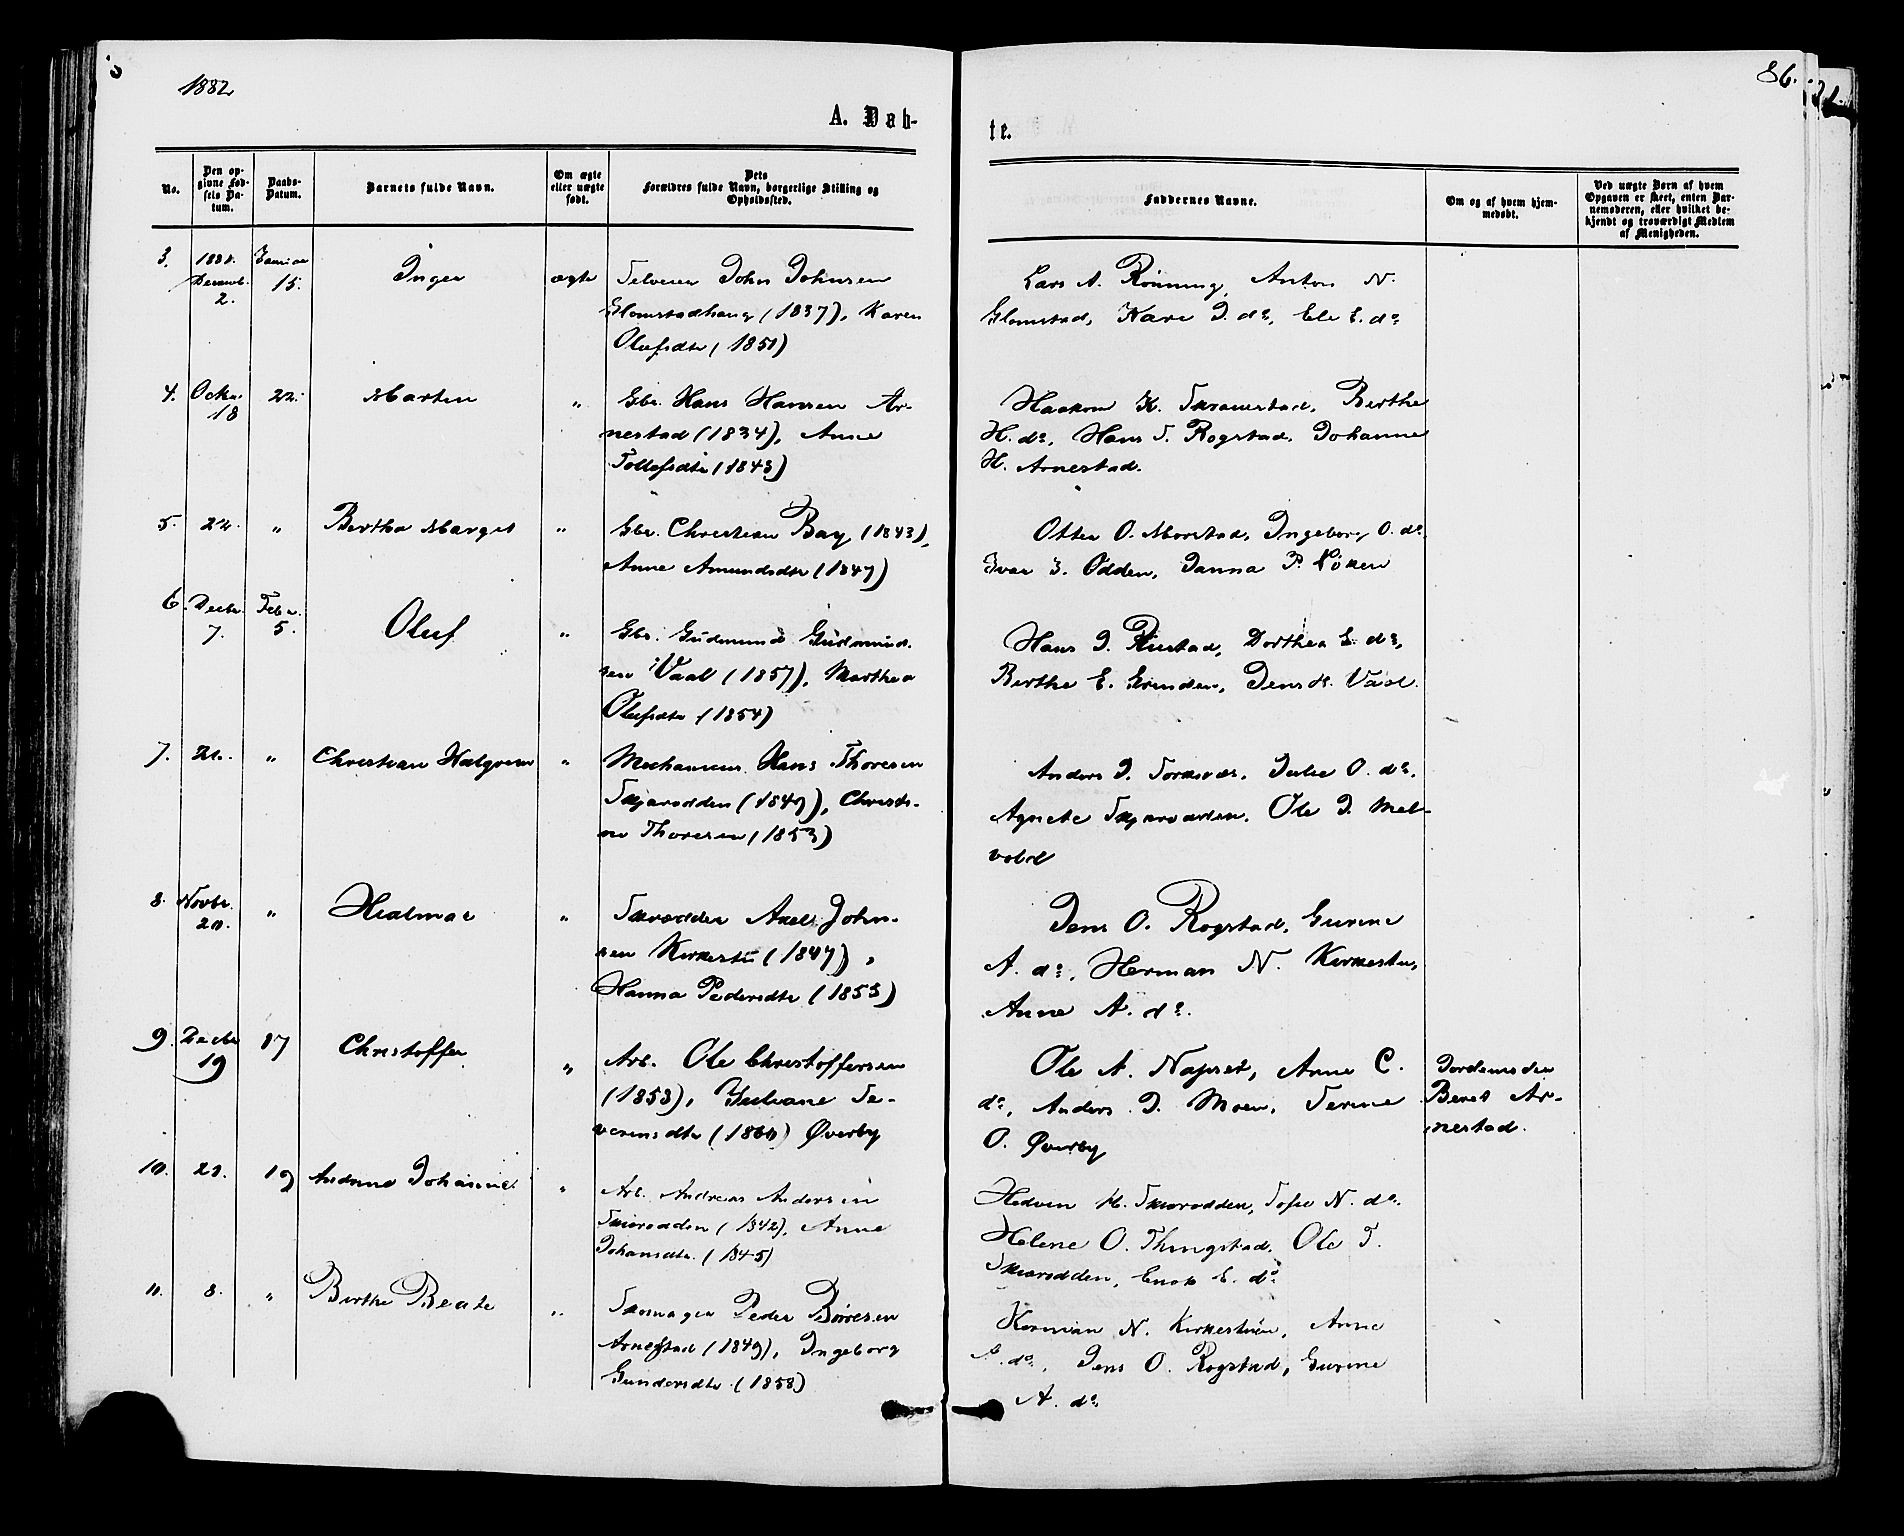 1882
86.
A. Døb-
te.
No.
Den op-
givne Fød-
sels Da-
tum.
Daabs-
Datum.
Barnets fulde Navn.
Om ægte
eller uægte
født.
Dets
Forældres fulde Navn, borgerlige Stilling og
Opholdssted.
Faddernes Navne.
Om og af hvem hjem-
medøbt.
Ved uægte Børn af hvem
Opgaven er skeet, enten Bar-
nemoderen, eller hvilket be-
kjendt og troværdigt Medlem
af Menigheden.
3. 1881. Decemb. 2. Januar 15. Inger ægte
Selveier John Johnsen
Glomstadhaug (1837), Karen
Olufsdtr (1851)
Lars A. Rönning, Anton N.
Glomstad, Kari J. do, Ele E. do
4. Octbr. 18 22. Martin "
Gbr. Hans Hansen Ar-
nestad (1834), Anne
Tollefsdtr (1843)
Haakon K. Skrauestad, Berthe
H. do, Hans T. Rogstad, Johanne
H. Arnestad.
5. 22. " Bertha Marget "
Gbr. Christian Bay (1843),
Anne Amundsdtr (1847)
Otter O. Morstad, Ingeborg O. do
Ivar I. Odden, Janna P. Löken
6. Decbr. 7. Febr. 5. Oluf "
Gbr. Gudmund Gudmund-
sen Vaal (1857), Marthea
Olufsdtr (1854)
Hans J. Rustad, Dorthea E. do,
Berthe E. Grinden, Jens H. Vaal.
7. 21. " Christian Halgrim "
Mechanicus Hans Thoresen
Skjærodden (1849), Christi-
ne Thoresen (1853)
Anders J. Torknes, Julie O. do,
Agnete Skjærodden, Ole J. Mel-
vold
8. Novbr. 20. " Hialmar "
Skrædder Axel John-
sen Kirkestu (1847),
Hanna Pedersdtr (1853)
Jens O. Rogstad, Gurine
A. do, Herman N. Kirkestu,
Anne A. do.
9. Decbr 19 17 Christoffer "
Arb. Ole Christoffersen
(1853), Juliane Se-
verinsdtr (1860) Øverby
Ole A. Napset, Anne C.
do, Anders J. Moen, Serine
O. Øverby
Jordemoder
Beret Ar-
nestad.
10. 21. 19 Andrine Johanne "
Arb. Andreas Andersen
Skiærodden (1842), Anne
Johansdtr. (1845)
Hedven H. Skiærodden, Sofie N. do.
Helene O. Thingstad, Ole T.
Skiærodden, Enok E. do
11. 8. " Berthe Beate "
Skomager Peder Börresen
Arnestad (1849), Ingeborg
Gundersdtr. (1858)
Herman N. Kirkestuen, Anne
A. do, Jens O. Rogstad, Gurine
A. do